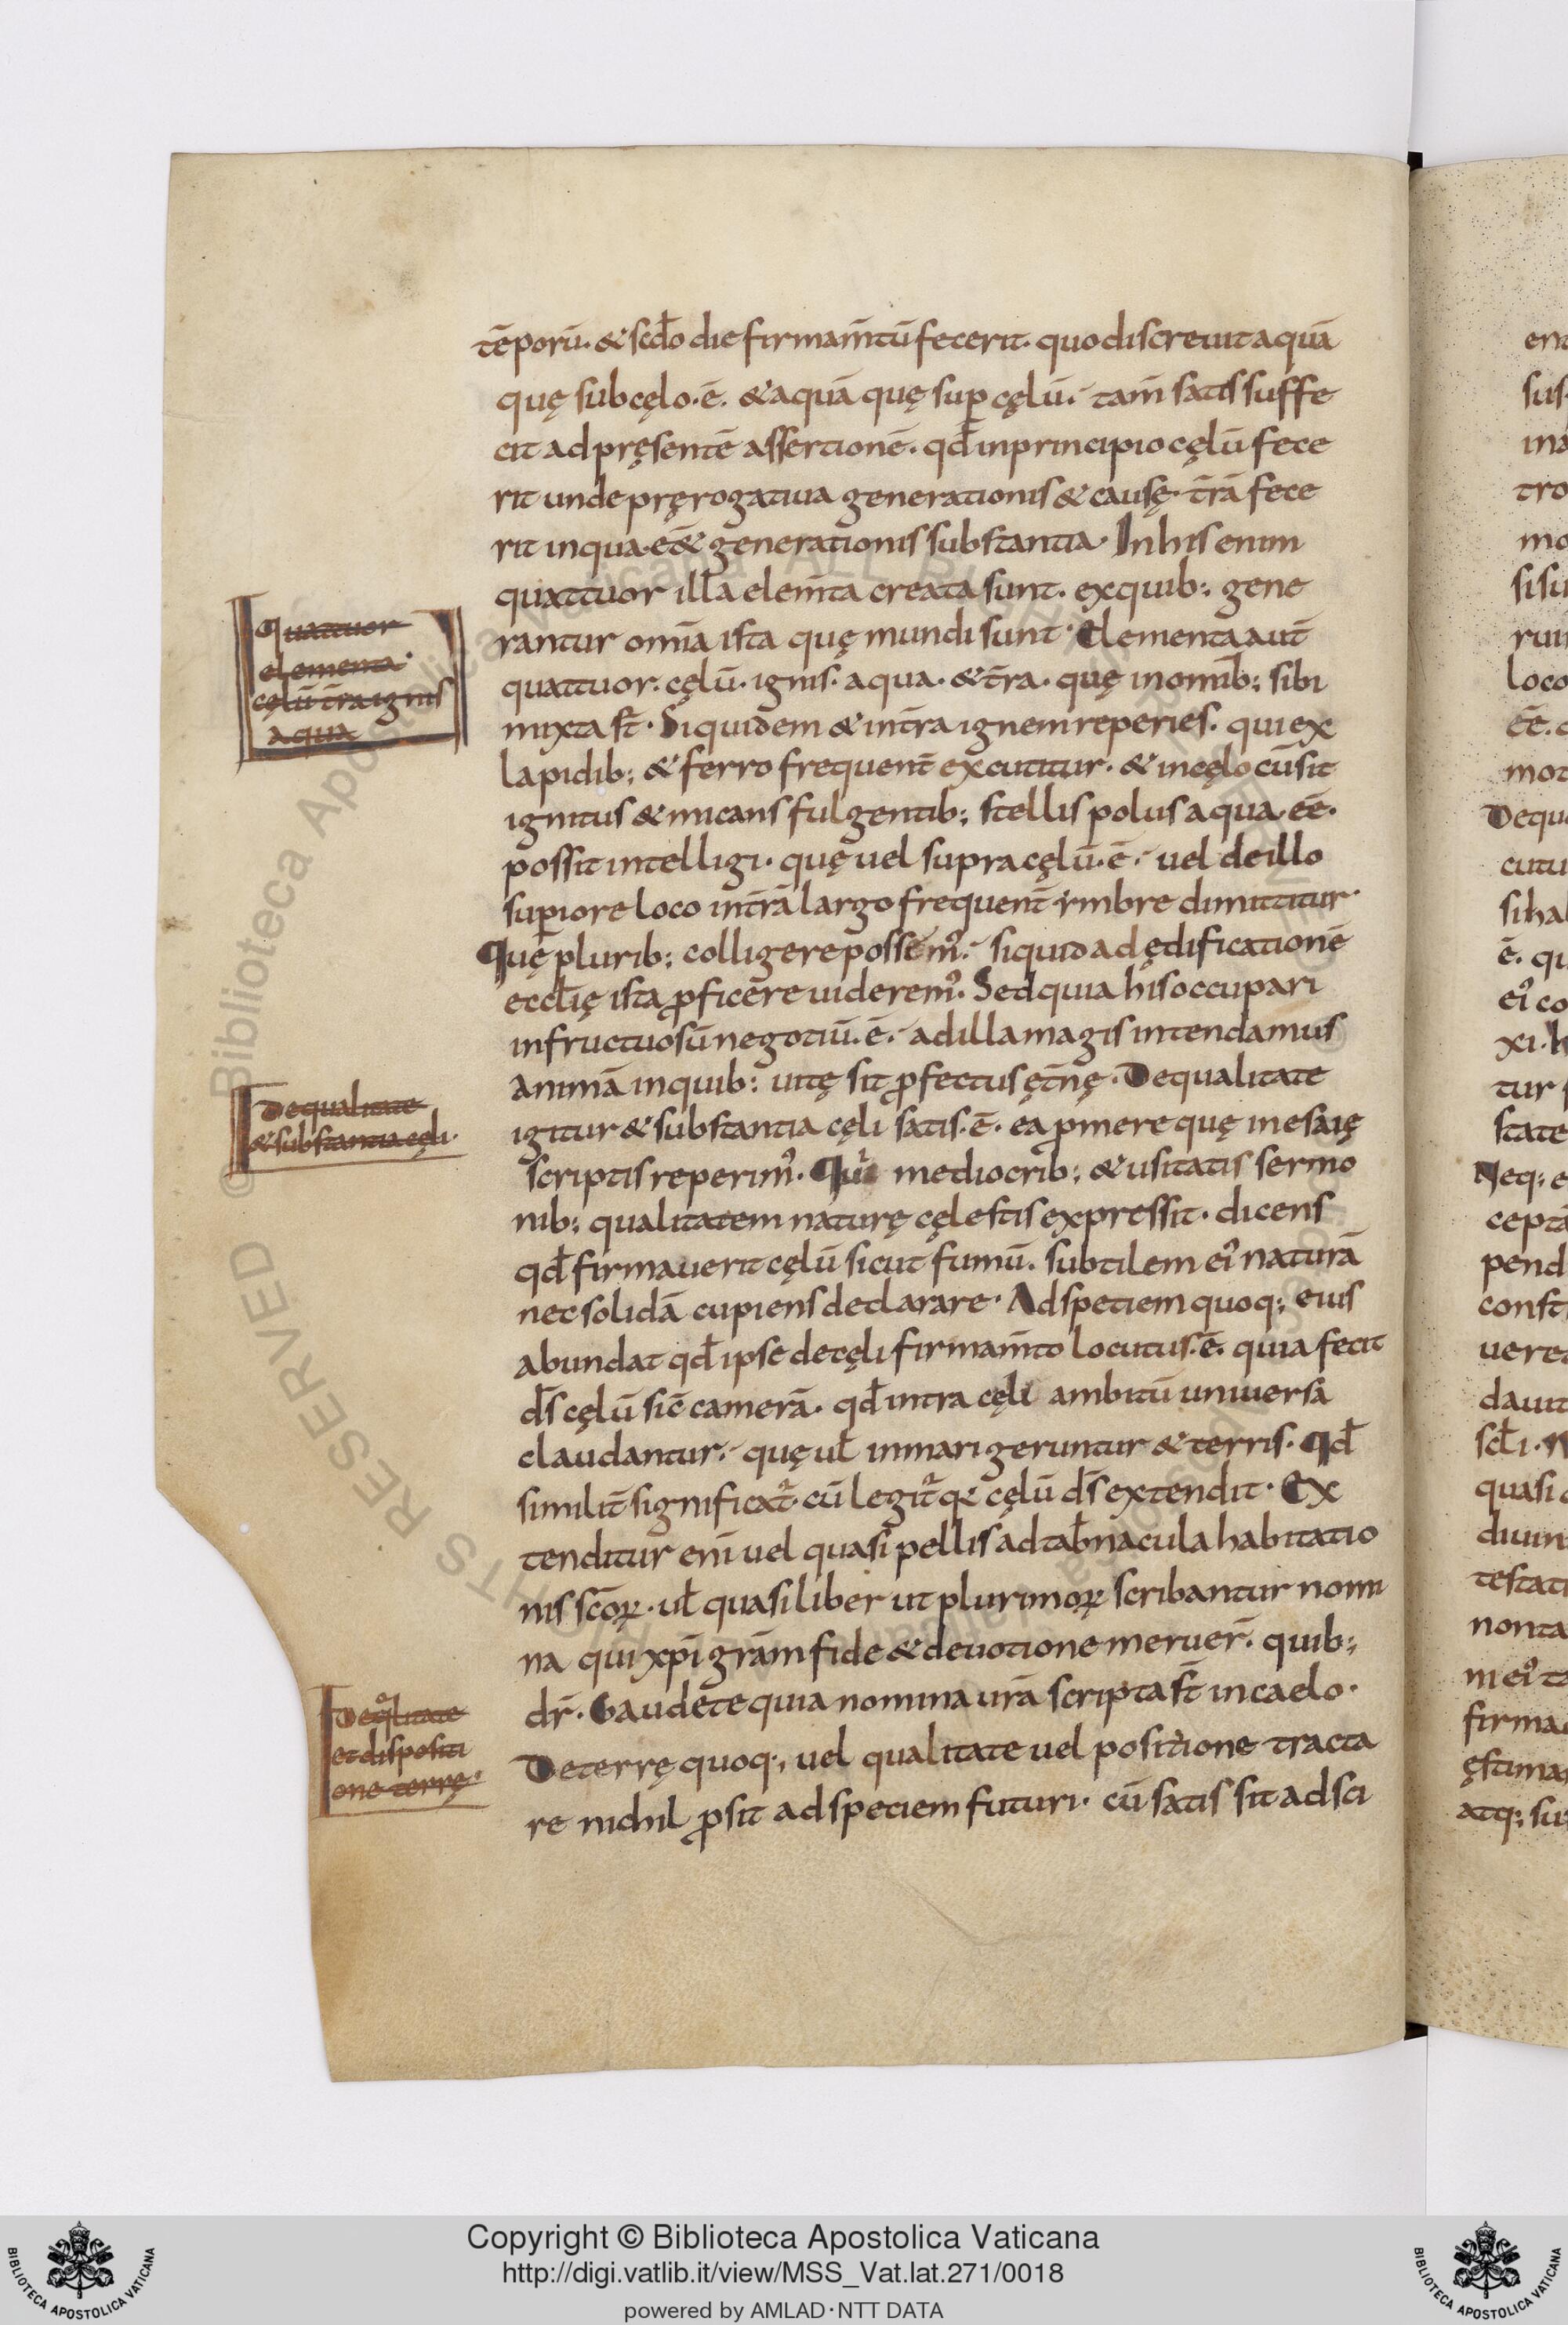 tēporū· & scđo die firmam̄tū fecerit· quo discreuit aquā
quę sub cęlo·ē· & aquā quę sup̄ cęlū· tam̄ satis suffe
cit ad pręsentē assertionē· qđ in principio cęlū fece
rit unde pręrogatiua generationis & causę· t̄rā fece
rit in qua·eē& generationis substantia· In his enim
quattuor illa elem̄ta creata sunt· ex quib; gene
rantur omīa ista quę mundi sunt· Elementa aut̄
quattuor· cęlū· ignis· aqua· & t̄ra· quę in omīb; sibi
mixta st̄· Siquidem & in t̄ra ignem reperies· qui ex
lapidib; & ferro frequent̄ excutitur· & in cęlo cū sit
ignitus & micans fulgentib; stellis polus aqua·eē·
possit intelligi· quę uel supra cęlū·ē· uel de illo
sup̄iore loco in t̄rā largo frequent̄ imbre dimittitur·
Quę plurib; colligere possem᾿· siquid ad ędificationē
eccłię ista ꝓficere uiderem᾿· Sed quia his occupari
infructuosū negotiū·ē· ad illa magis intendamus
animā in quib; uitę sit ꝓfectus ęt̄nę· De qualitate
igitur & substantia cęli satis·ē· ea ꝓmere quę in esaię
scriptis reperim᾿· Qui mediocrib; & usitatis sermo
nib; qualitatem naturę cęlestis expressit· dicens
qđ firmauerit cęlū sicut fumū· subtilem ei᾿ naturā
nec solidā cupiens declarare· Ad speciem quoq; eius
abundat qđ ipse de cęli firmam̄to locutus·ē· quia fecit
d̄s cęlū sic̄ camerā· qđ intra cęli ambitū uniuersa
claudantur· quę uł in mari geruntur & terris· Qđ
similit̄ significat᾿· cū legit᾿ qꝛ cęlū d̄s extendit· Ex
tenditur eni᾿ uel quasi pellis ad tab̄nacula habitatio
nis sc̄oꝝ· uł quasi liber ut plurimoꝝ scribantur nomi
na qui xp̄i grām fide & deuotione meruer̄· quib;
dr̄· Gaudete quia nomina urā scripta st̄ in caelo·
De terrę quoq; uel qualitate uel positione tracta
re nichil ꝓsit ad speciem futuri· cū satis sit ad sci
Quattuor
elementa·
cęlū t̄ra ignis
aqua
De qualitate
& substantia cęli·
De qlitate
et dispositi
one terrę·
ena
sus·
ina
tro
mo
sisu
ruin
loco
eē·
mot
De qu
cutu
si ha
ē· qu
ei᾿ co
xi· h
tur
state
Neq; e
cepta
pend
const
uere
dauit
scłi·
quasi
diuin
testati
non ta
m ei᾿ ta
firma
ęstima
atq; su
© Biblioteca Apostolica Vaticana ALL RIGHTS RESERVED
Copyright © Biblioteca Apostolica Vaticana
http://digi.vatlib.it/view/MSS_Vat.lat.271/0018
powered by AMLAD·NTT DATA
BIBLIOTECA APOSTOLICA VATICANA
BIBLIOTECA APOSTOLICA VATICANA